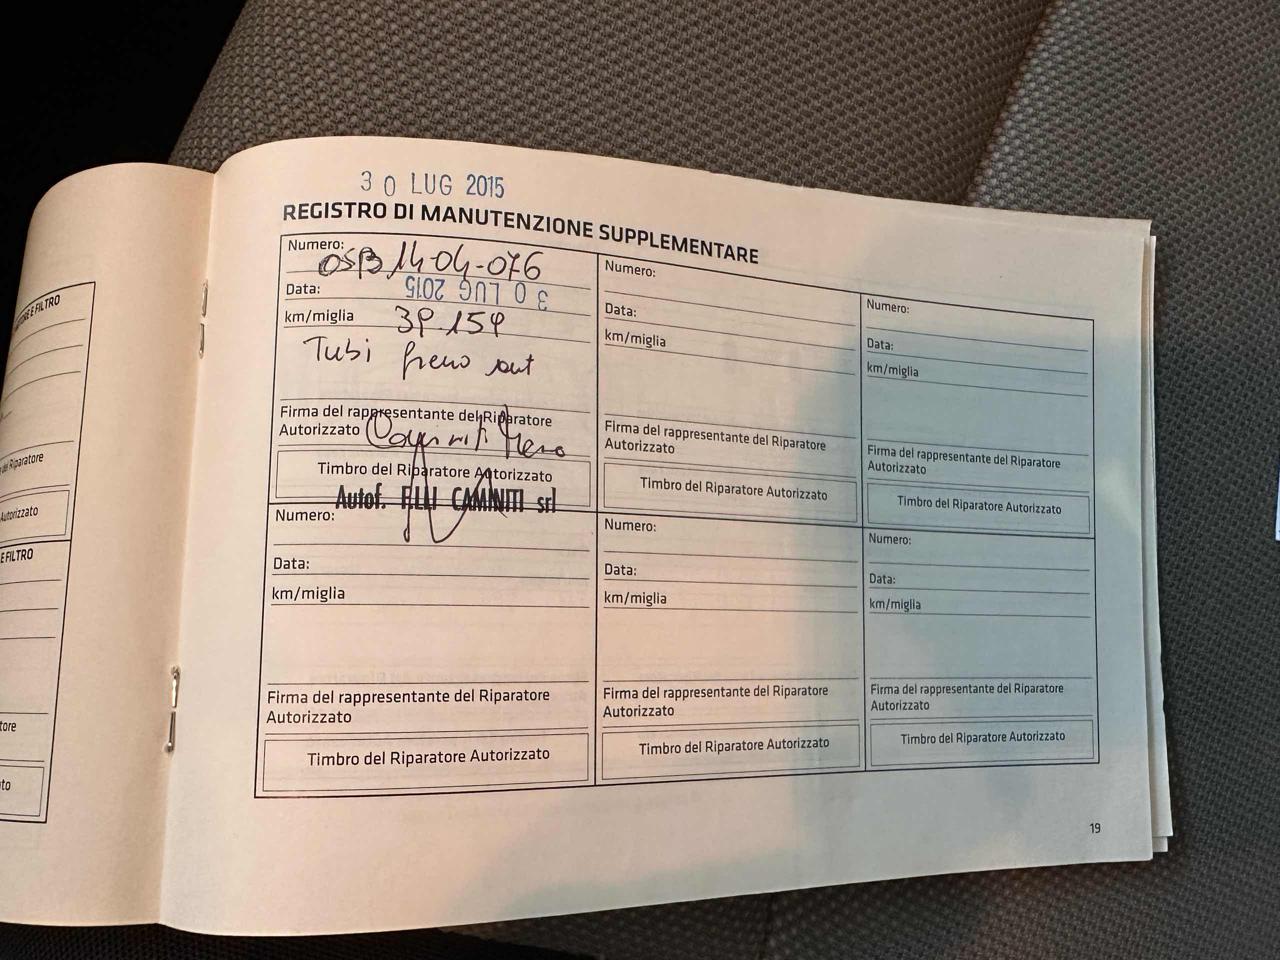 30 LUG 2015
REGISTRO DI MANUTENZIONE SUPPLEMENTARE
Numero: OSB 14-04-076
Data: 30 LUG 2015
km/miglia 39.159
Tubi freno ant
Firma del rappresentante del Riparatore
Autorizzato
Timbro del Riparatore Autorizzato
Autof. F.LLI CAMINITI srl
Numero:
Data:
km/miglia
Firma del rappresentante del Riparatore
Autorizzato
Timbro del Riparatore Autorizzato
Numero:
Data:
km/miglia
Firma del rappresentante del Riparatore
Autorizzato
Timbro del Riparatore Autorizzato
Numero:
Data:
km/miglia
Firma del rappresentante del Riparatore
Autorizzato
Timbro del Riparatore Autorizzato
Numero:
Data:
km/miglia
Firma del rappresentante del Riparatore
Autorizzato
Timbro del Riparatore Autorizzato
Numero:
Data:
km/miglia
Firma del rappresentante del Riparatore
Autorizzato
Timbro del Riparatore Autorizzato
19
E FILTRO
Riparatore
Autorizzato
E FILTRO
tore
to